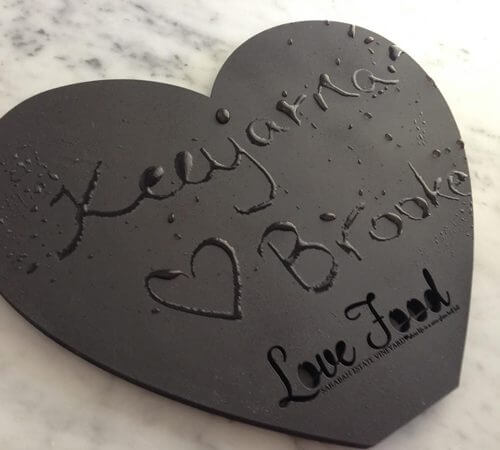 Keeyarna
♡ Brooke
Love Food
SARABAH ESTATE VINEYARD